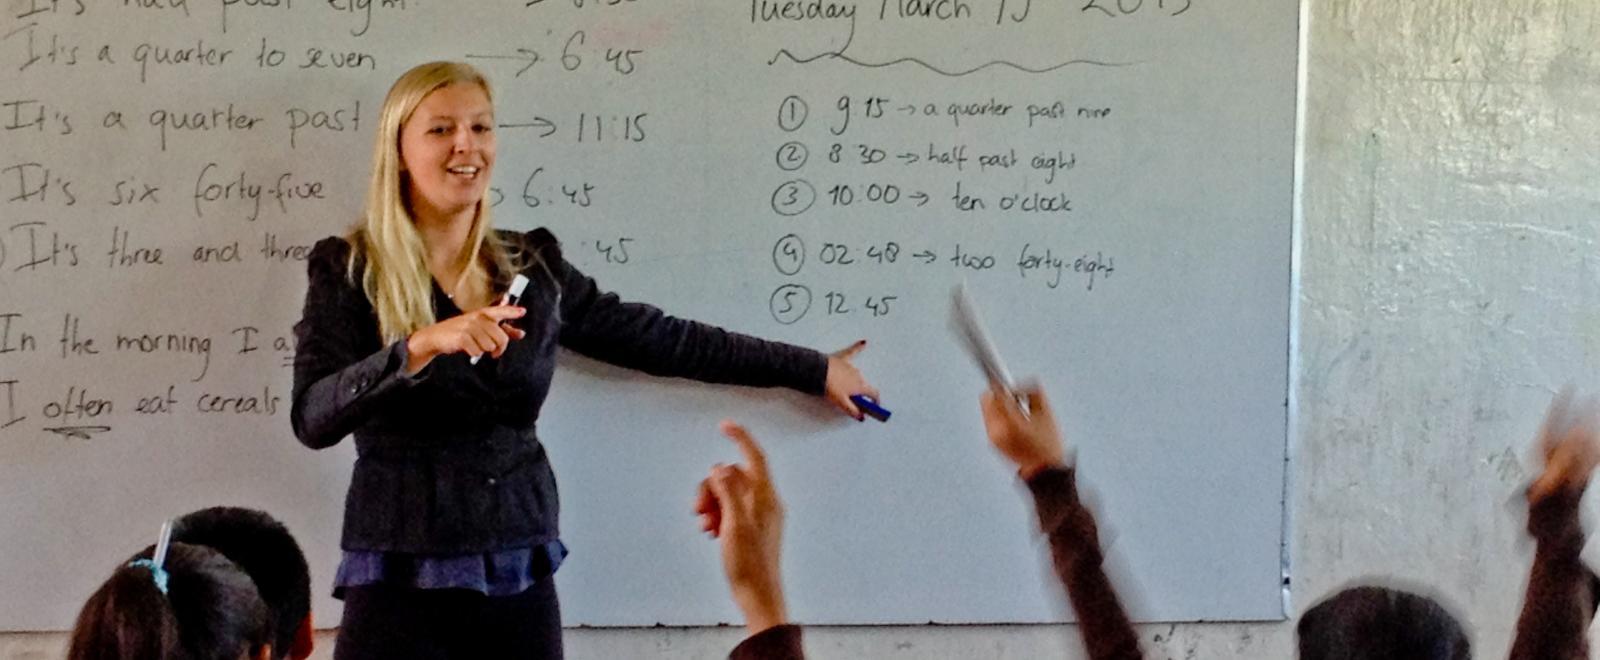 It's half past eight
Tuesday March
It's a quarter to seven → 6:45
It's a quarter past → 11:15
It's six forty-five → 6:45
It's three and three :45
In the morning I
I often eat cereals
① 9:15 → a quarter past nine
② 8 30 → half past eight
③ 10:00 → ten o'clock
④ 02:48 → two forty-eight
⑤ 12 45